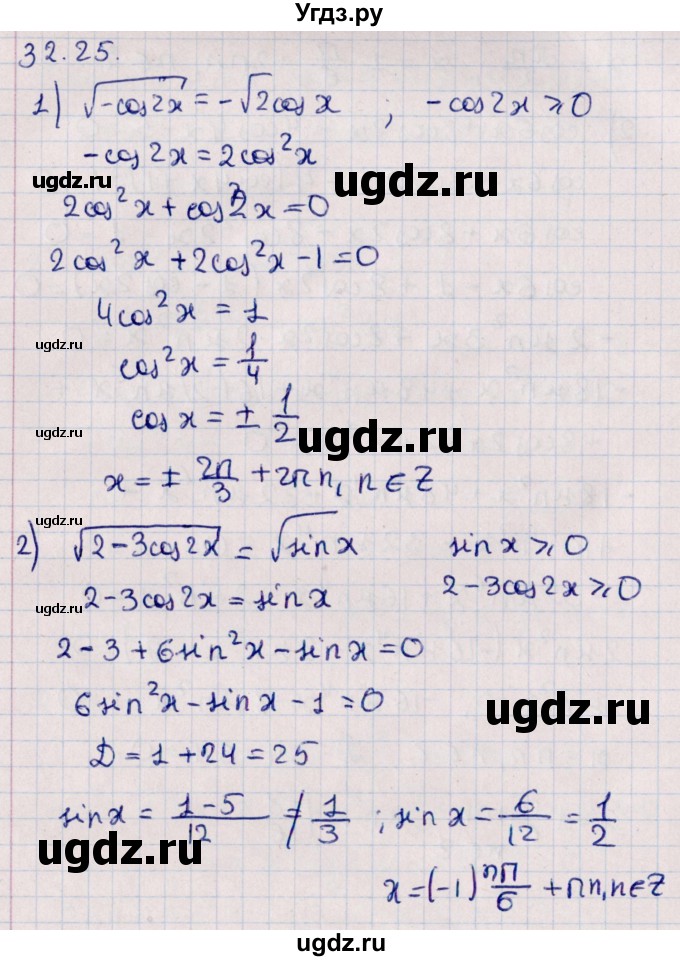 Угдз.ру
32.25.
1) √(-cos2x) = -√2cosx ; -cos2x ⩾ 0
-cos2x = 2cos²x
ugdz.ru ugdz.ru
2cos²x + cos2x = 0
2cos²x + 2cos²x - 1 = 0
4cos²x = 1
ugdz.ru
cos²x = 1/4
cosx = ± 1/2
ugdz.ru ugdz.ru
x = ± 2π/3 + 2πn, n ∈ Z
ugdz.ru
2) √(2-3cos2x) = √(sinx) sinx ⩾ 0
2-3cos2x = sinx 2-3cos2x ⩾ 0
ugdz.ru
2-3+6sin²x-sinx=0
6sin²x-sinx-1=0
ugdz.ru ugdz.ru
D = 1+24 = 25
sinx = (1-5)/12 ≠ 1/3 ; sinx = 6/12 = 1/2
ugdz.ru
x = (-1)ⁿ π/6 + πn, n∈Z
ugdz.ru
ugdz.ru